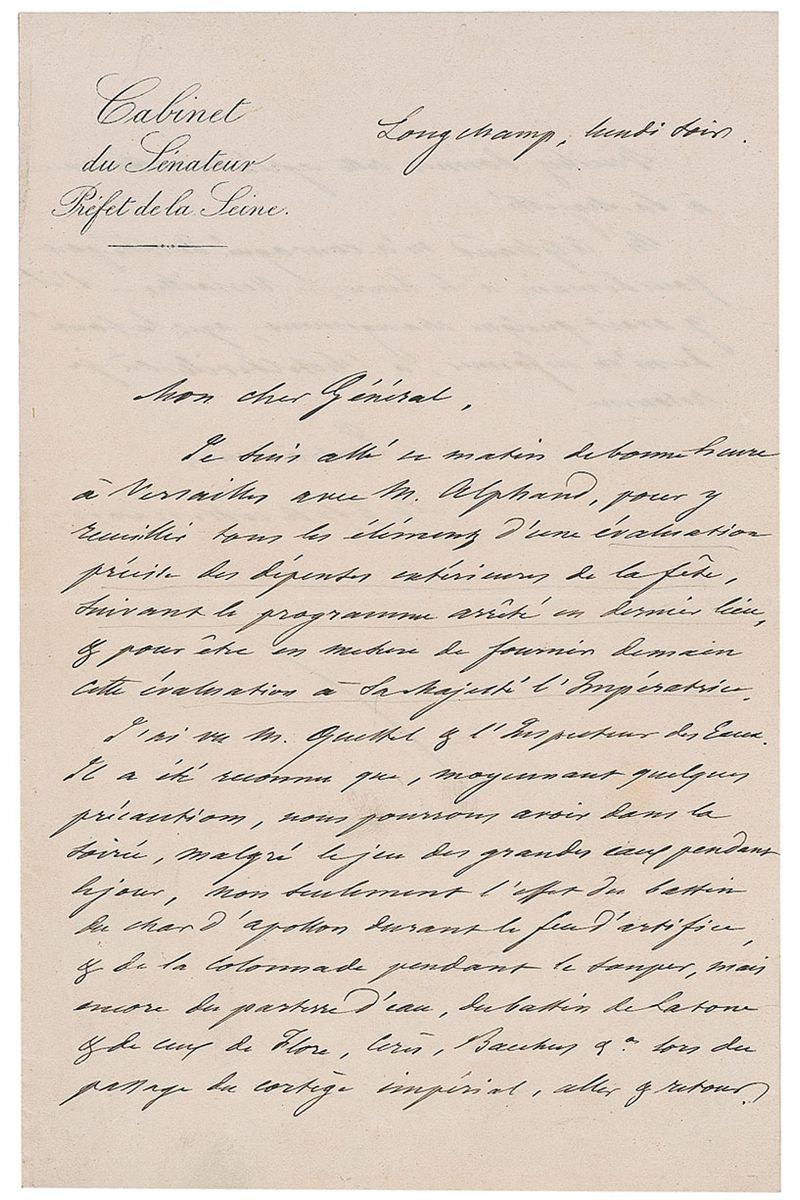 Cabinet
du Sénateur
Préfet de la Seine.
Longchamp, lundi soir.
Mon cher Général,
Je suis allé ce matin de bonne heure
à Versailles avec M. Alphand, pour y
recueillir tous les éléments d'une évaluation
précise des dépenses extérieures de la fête,
suivant le programme arrêté en dernier lieu,
& pour être en mesure de fournir demain
cette évaluation à Sa Majesté l'Impératrice.
J'ai vu M. Questel & l'Inspecteur des Eaux.
Il a été reconnu que, moyennant quelques
précautions, nous pourrons avoir dans la
soirée, malgré le jeu des grandes eaux pendant
le jour, non seulement l'effet du bassin
du char d'apollon durant le feu d'artifice,
& de la Colonnade pendant le souper, mais
encore du parterre d'eau, du bassin de Latone
& de ceux de Flore, Cérès, Bacchus &a lors du
passage du cortège impérial, aller & retour.